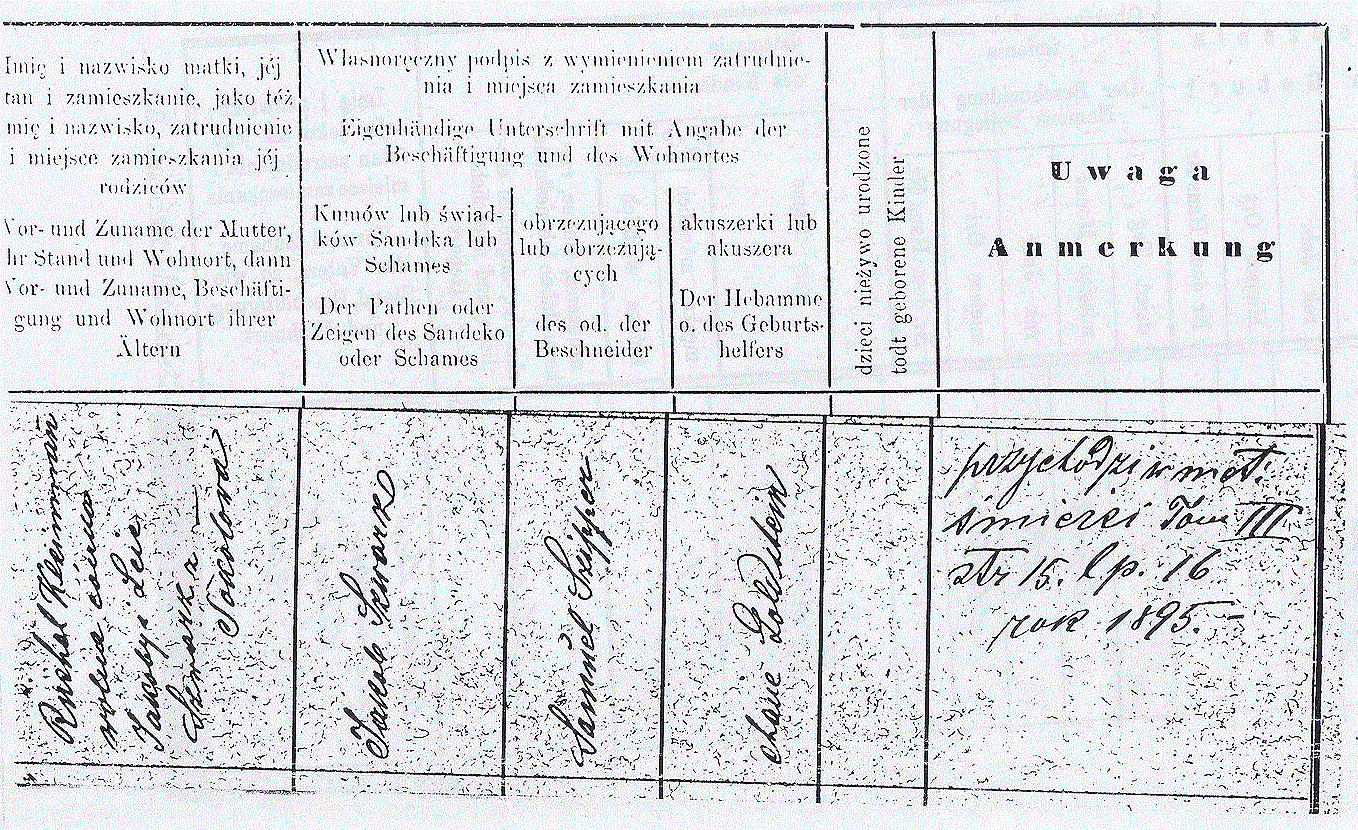 Imię i nazwisko matki, jéj
stan i zamieszkanie, jako téż
imię i nazwisko, zatrudnienie
i miejsce zamieszkania jéj
rodziców
Vor- und Zuname der Mutter,
Ihr Stand und Wohnort, dann
Vor- und Zuname, Beschäfti-
gung und Wohnort ihrer
Ältern
Własnoręczny podpis z wymienieniem zatrudnie-
nia i miejsca zamieszkania
Eigenhändige Unterschrift mit Angabe der
Beschäftigung und des Wohnortes
Kumów lub świad-
ków Sandeka lub
Schames
Der Pathen oder
Zeigen des Sandeko
oder Schames
obrzezującego
lub obrzezują-
cych
des od. der
Beschneider
akuszerki lub
akuszera
Der Hebamme
o. des Geburts-
helfers
dzieci nieżywo urodzone
todt geborene Kinder
Uwaga
Anmerkung
Ruchel Kleinmann
córka
i Leie
Szwarz
Jakob Szwarz
Samuel
Chane Goldstein
przychodzi w met.
śmierci Tom III
str 15. lp. 16
rok 1895.-